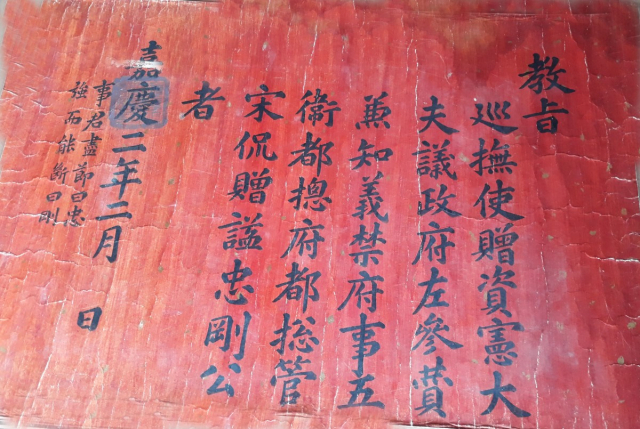 教旨
巡撫使贈資憲大
夫議政府左參賛
兼知義禁府事五
衛都摠府都摠管
宋侃贈謚忠剛公
者
嘉慶二年二月 日
事君盡節曰忠
強而能斷曰剛